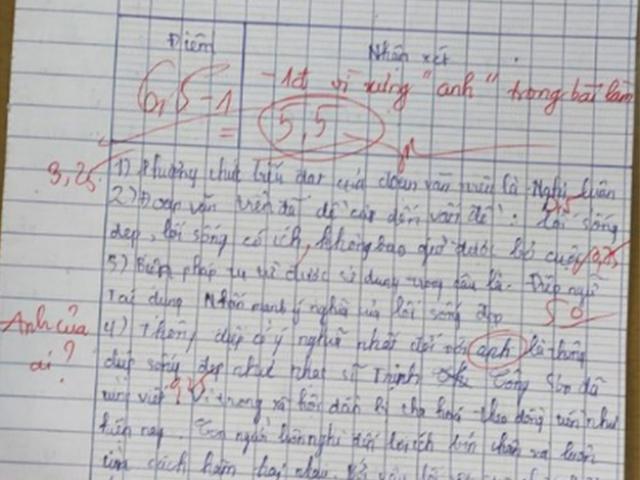 Điểm
Nhận xét
6,5-1
= 5,5
-1đ vì xưng "anh" trong bài làm
3,25
1) Phương thức biểu đạt của đoạn văn trên là Nghị luận
2) Đoạn văn trên đã đề cập đến vấn đề: lối sống
đẹp, lối sống có ích, không bao giờ được bỏ cuộc
0,25
3) Biện pháp tu từ được sử dụng trong câu là: Điệp ngữ
Tác dụng Nhấn mạnh ý nghĩa của lối sống đẹp
Anh của
ai?
4) Thông điệp có ý nghĩa nhất đối với anh là thông
điệp sống đẹp như nhạc sĩ Trịnh Công Sơn đã
từng viết. Vì trong xã hội dần bị tha hoá theo đồng tiền như
hiện nay. Con người luôn nghĩ đến lợi ích bản thân và luôn
tìm cách hãm hại nhau.